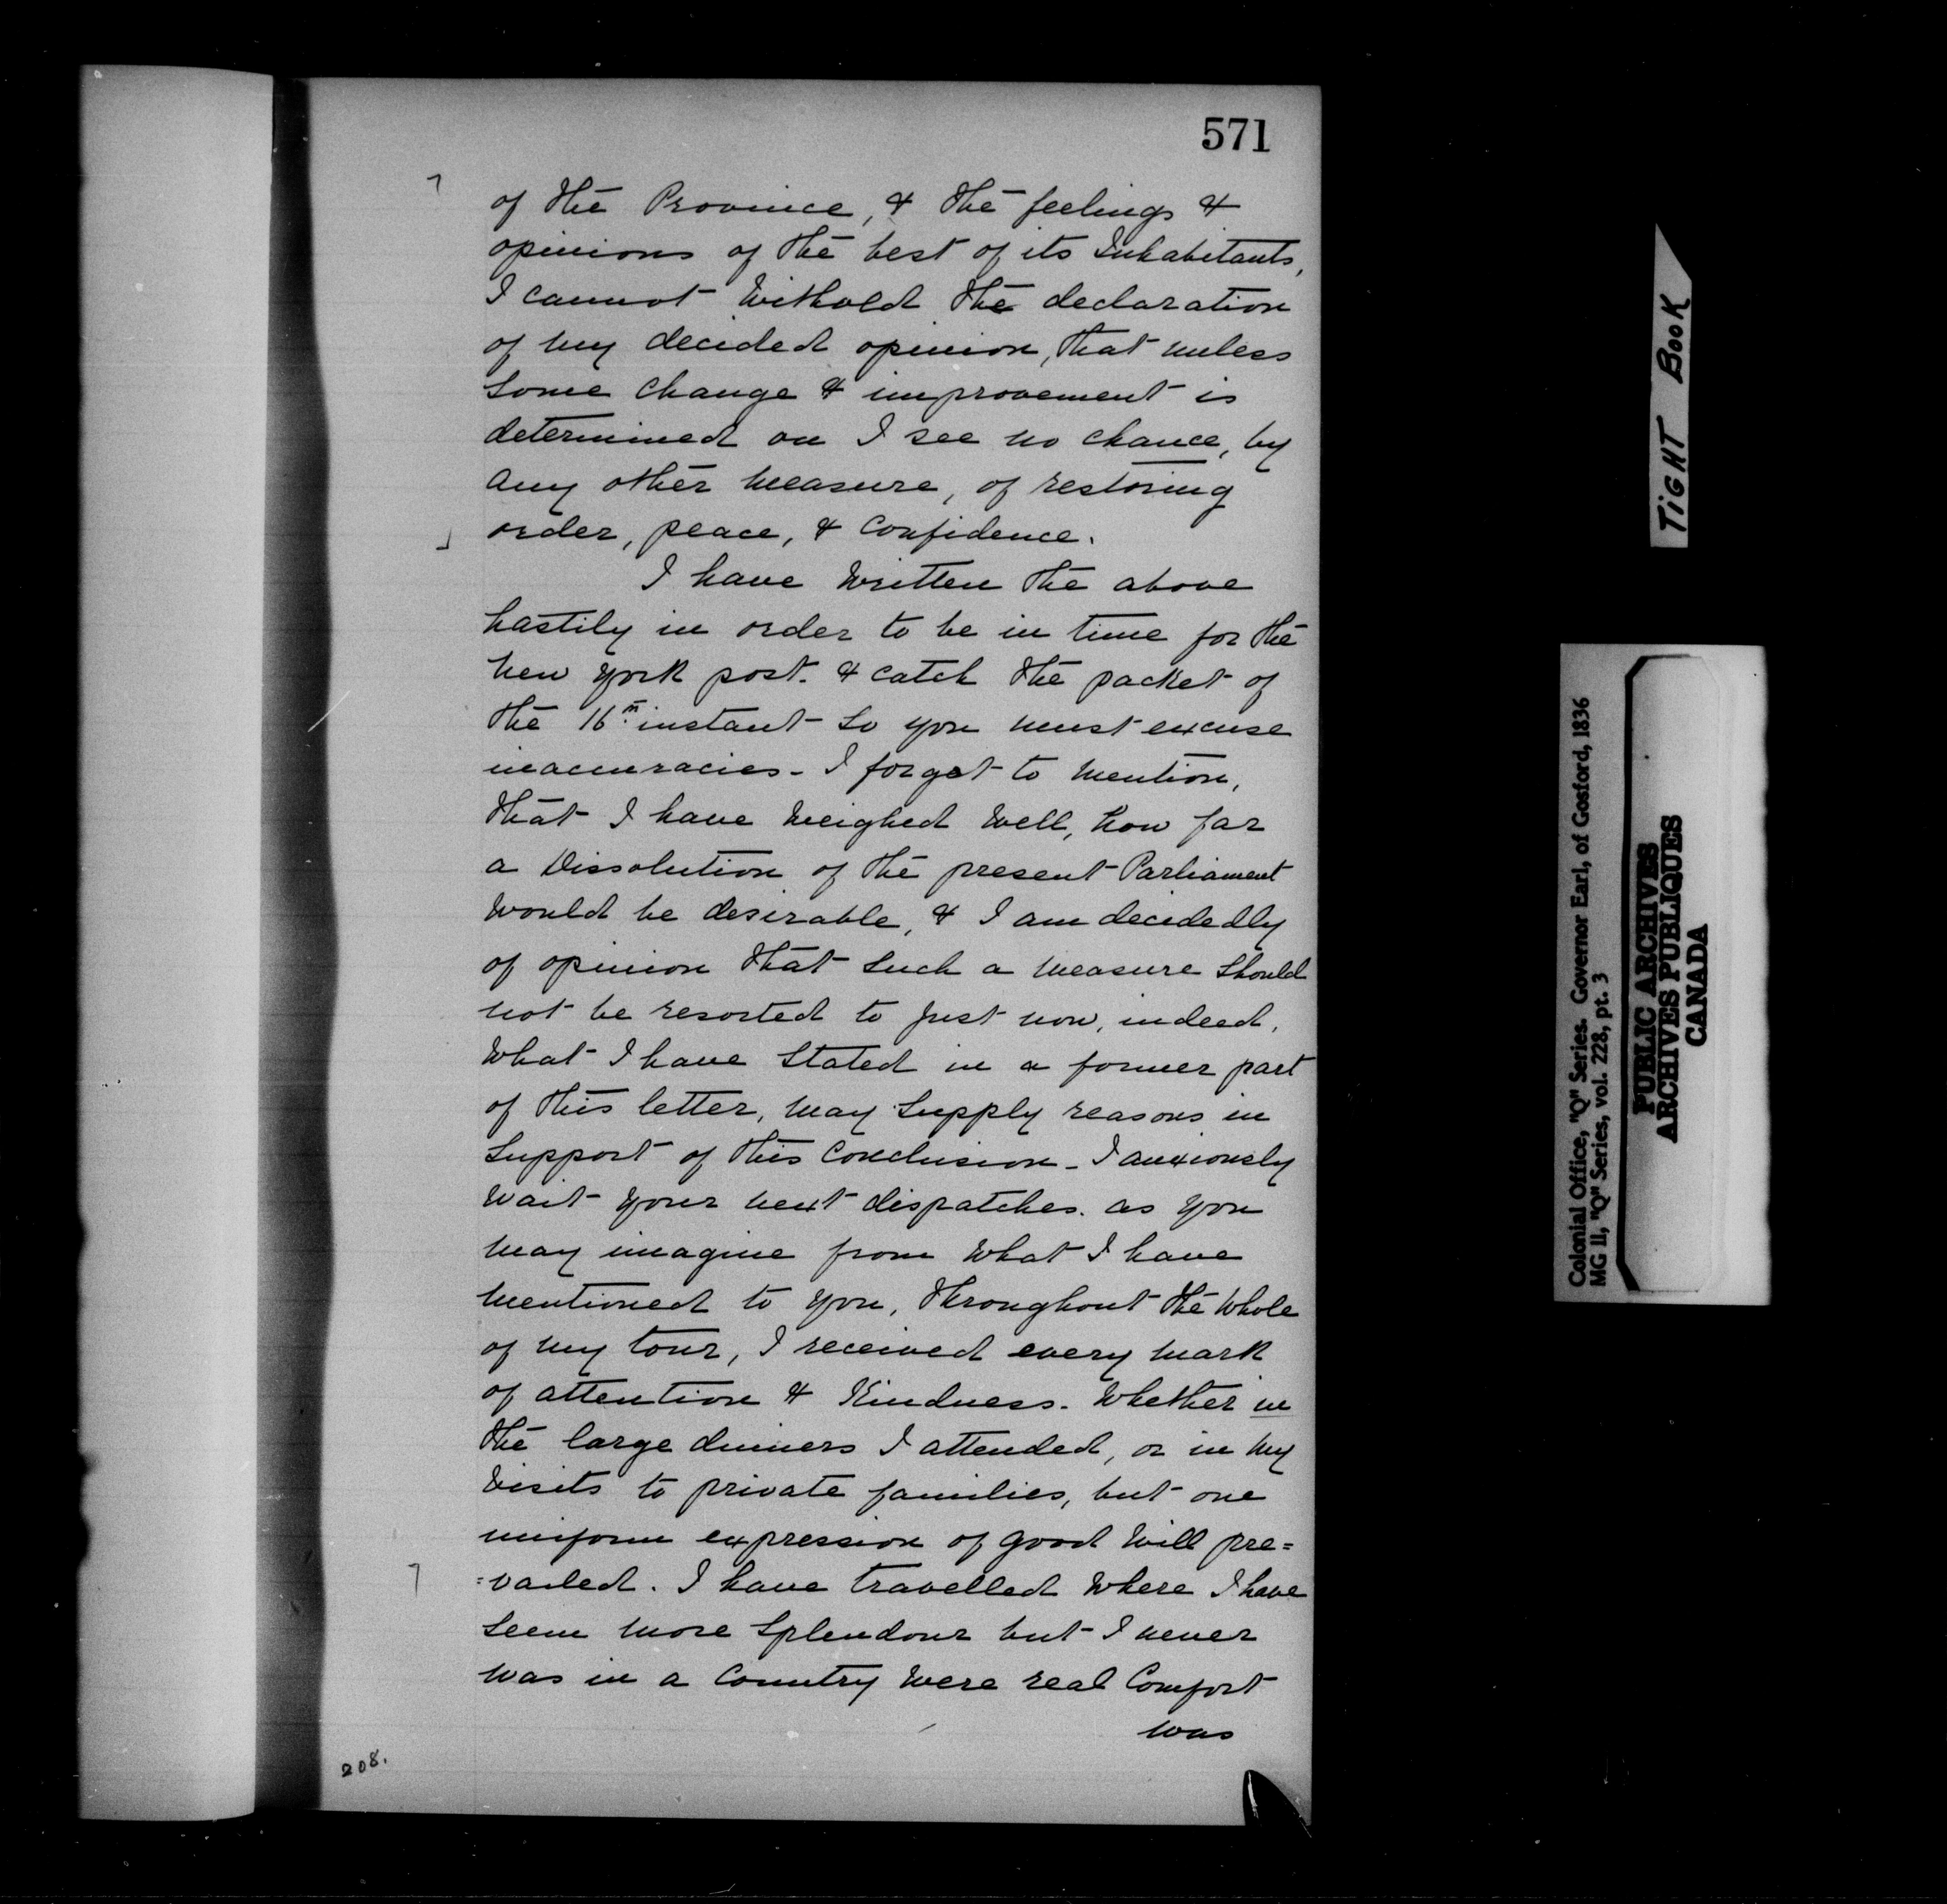 571
of the Province, & the feelings &
opinions of the best of its Inhabitants,
I cannot withold the declaration
of my decided opinion, that unless
some change & improvement is
determined on I see no chance, by
any other measure, of restoring
order, peace, & confidence.
I have written the above
hastily in order to be in time for the
New York post. & catch the packet of
the 16th instant so you must excuse
inaccuracies - I forgot to mention,
that I have weighed well, how far
a Dissolution of the present Parliament
would be desirable, & I am decidedly
of opinion that such a measure should
not be resorted to just now, indeed,
what I have stated in a former part
of this letter, may supply reasons in
support of this conclusion - I anxiously
wait your next dispatches. as you
may imagine from what I have
mentioned to you, throughout the whole
of my tour, I received every mark
of attention & Kindness. Whether in
the large dinners I attended, or in my
visits to private families, but one
uniform expression of good will pre=
=vailed. I have travelled where I have
seem more splendour but I never
was in a country were real comfort
was
208.
TIGHT BOOK
Colonial Office, "Q" Series. Governor Earl, of Gosford, 1836
MG II, "Q" Series, vol. 228, pt. 3
PUBLIC ARCHIVES
ARCHIVES PUBLIQUES
CANADA